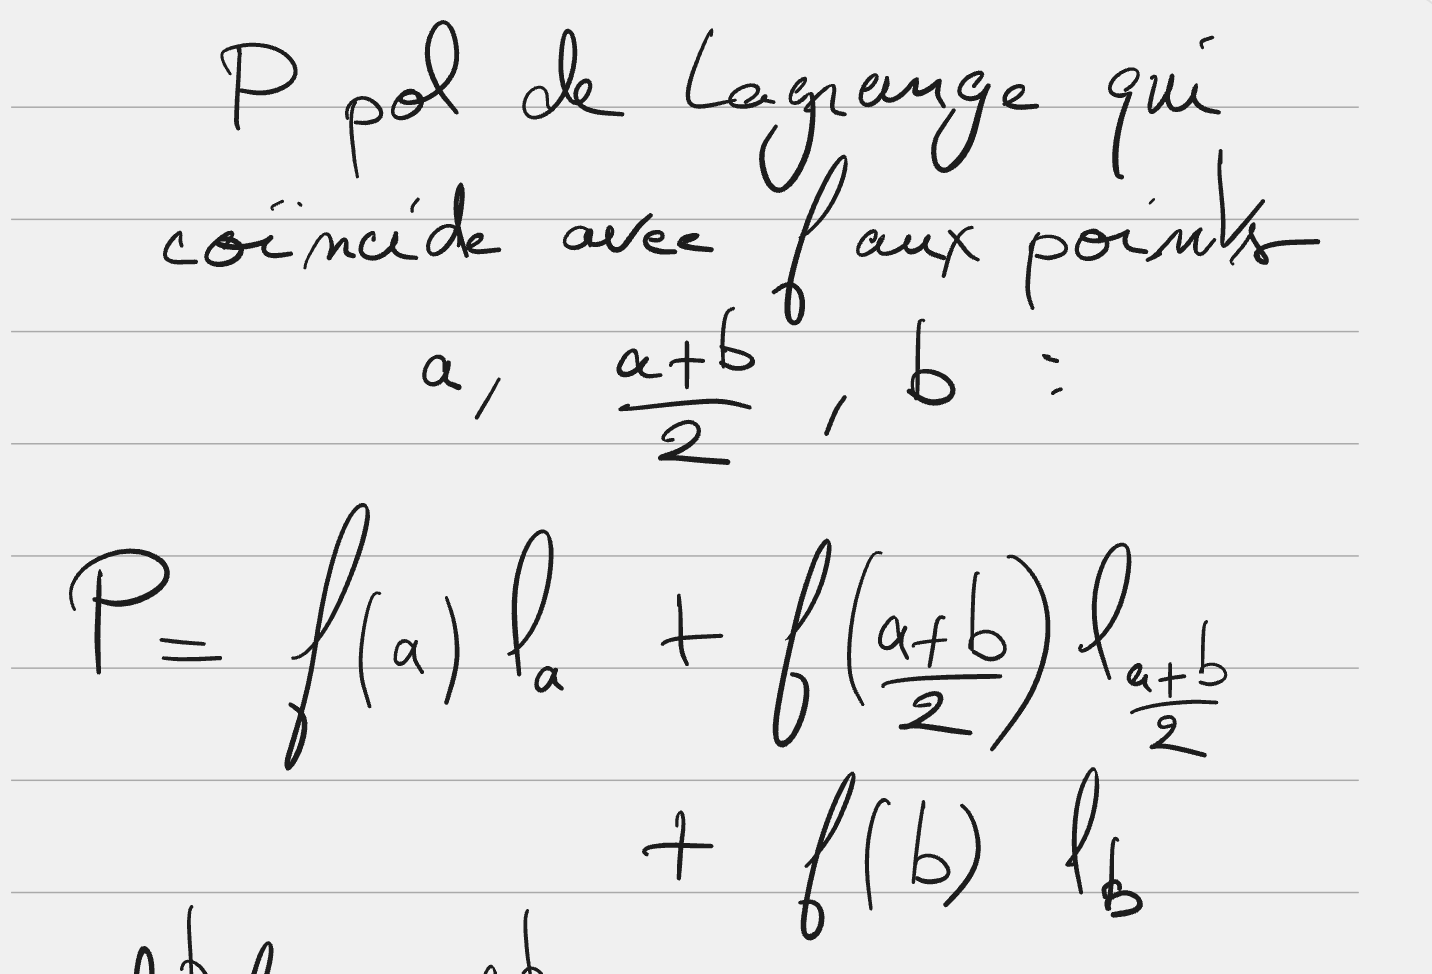 P pol de Lagrange qui
coïncide avec f aux points
a, \frac{a+b}{2}, b :
P = f(a) l_a + f(\frac{a+b}{2}) l_{\frac{a+b}{2}}
+ f(b) l_b